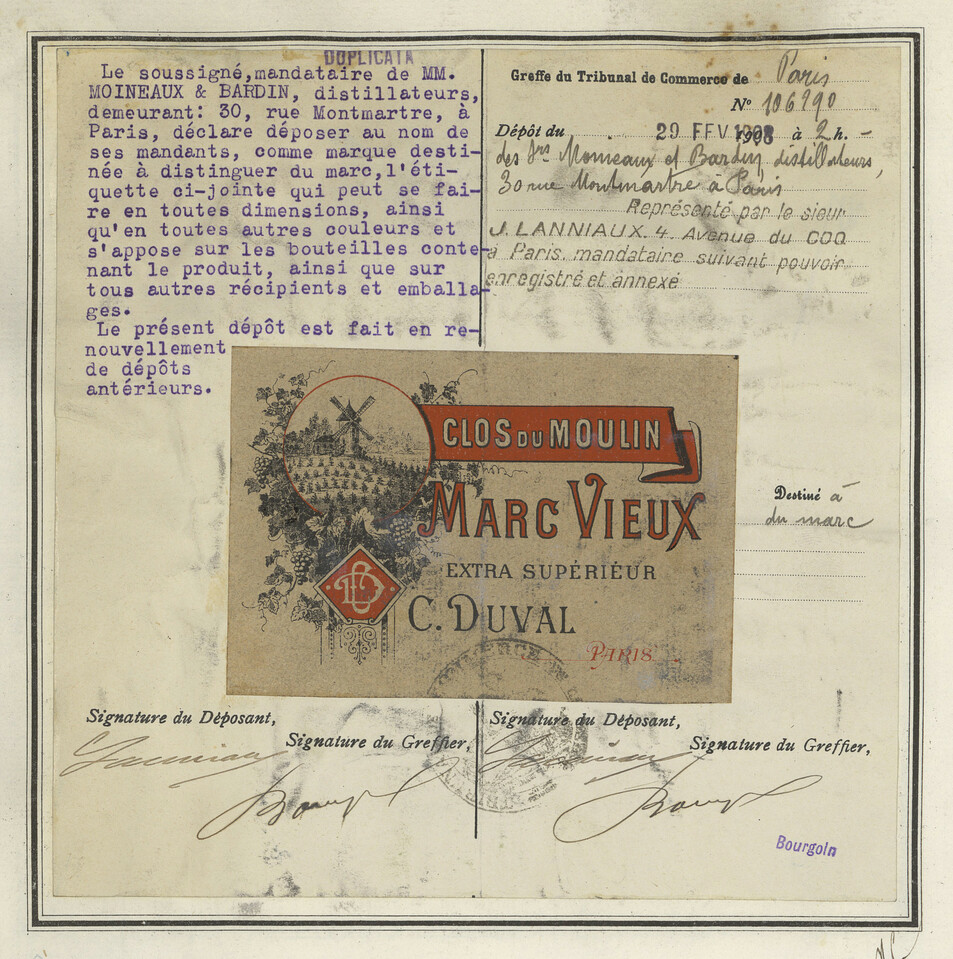 DUPLICATA
Le soussigné,mandataire de MM.
MOINEAUX & BARDIN, distillateurs,
demeurant: 30, rue Montmartre, à
Paris, déclare déposer au nom de
ses mandants, comme marque desti-
née à distinguer du marc,l'éti-
quette ci-jointe qui peut se fai-
re en toutes dimensions, ainsi
qu'en toutes autres couleurs et
s'appose sur les bouteilles conte-
nant le produit, ainsi que sur
tous autres récipients et emballa-
ges.
Le présent dépôt est fait en re-
nouvellement
de dépôts
antérieurs.
Greffe du Tribunal de Commerce de Paris
No 106290
Dépôt du 29 FEV 1908 à 2 h. -
des Srs Moineaux et Bardin distillateurs,
30 rue Montmartre à Paris
Représenté par le sieur
J. LANNIAUX. 4. Avenue du COQ
à Paris. mandataire suivant pouvoir
enregistré et annexé
CLOS DU MOULIN
MARC VIEUX
EXTRA SUPÉRIEUR
C. DUVAL
PARIS
Destiné à
du marc
Signature du Déposant,
Signature du Greffier,
Signature du Déposant,
Signature du Greffier,
Bourgoin